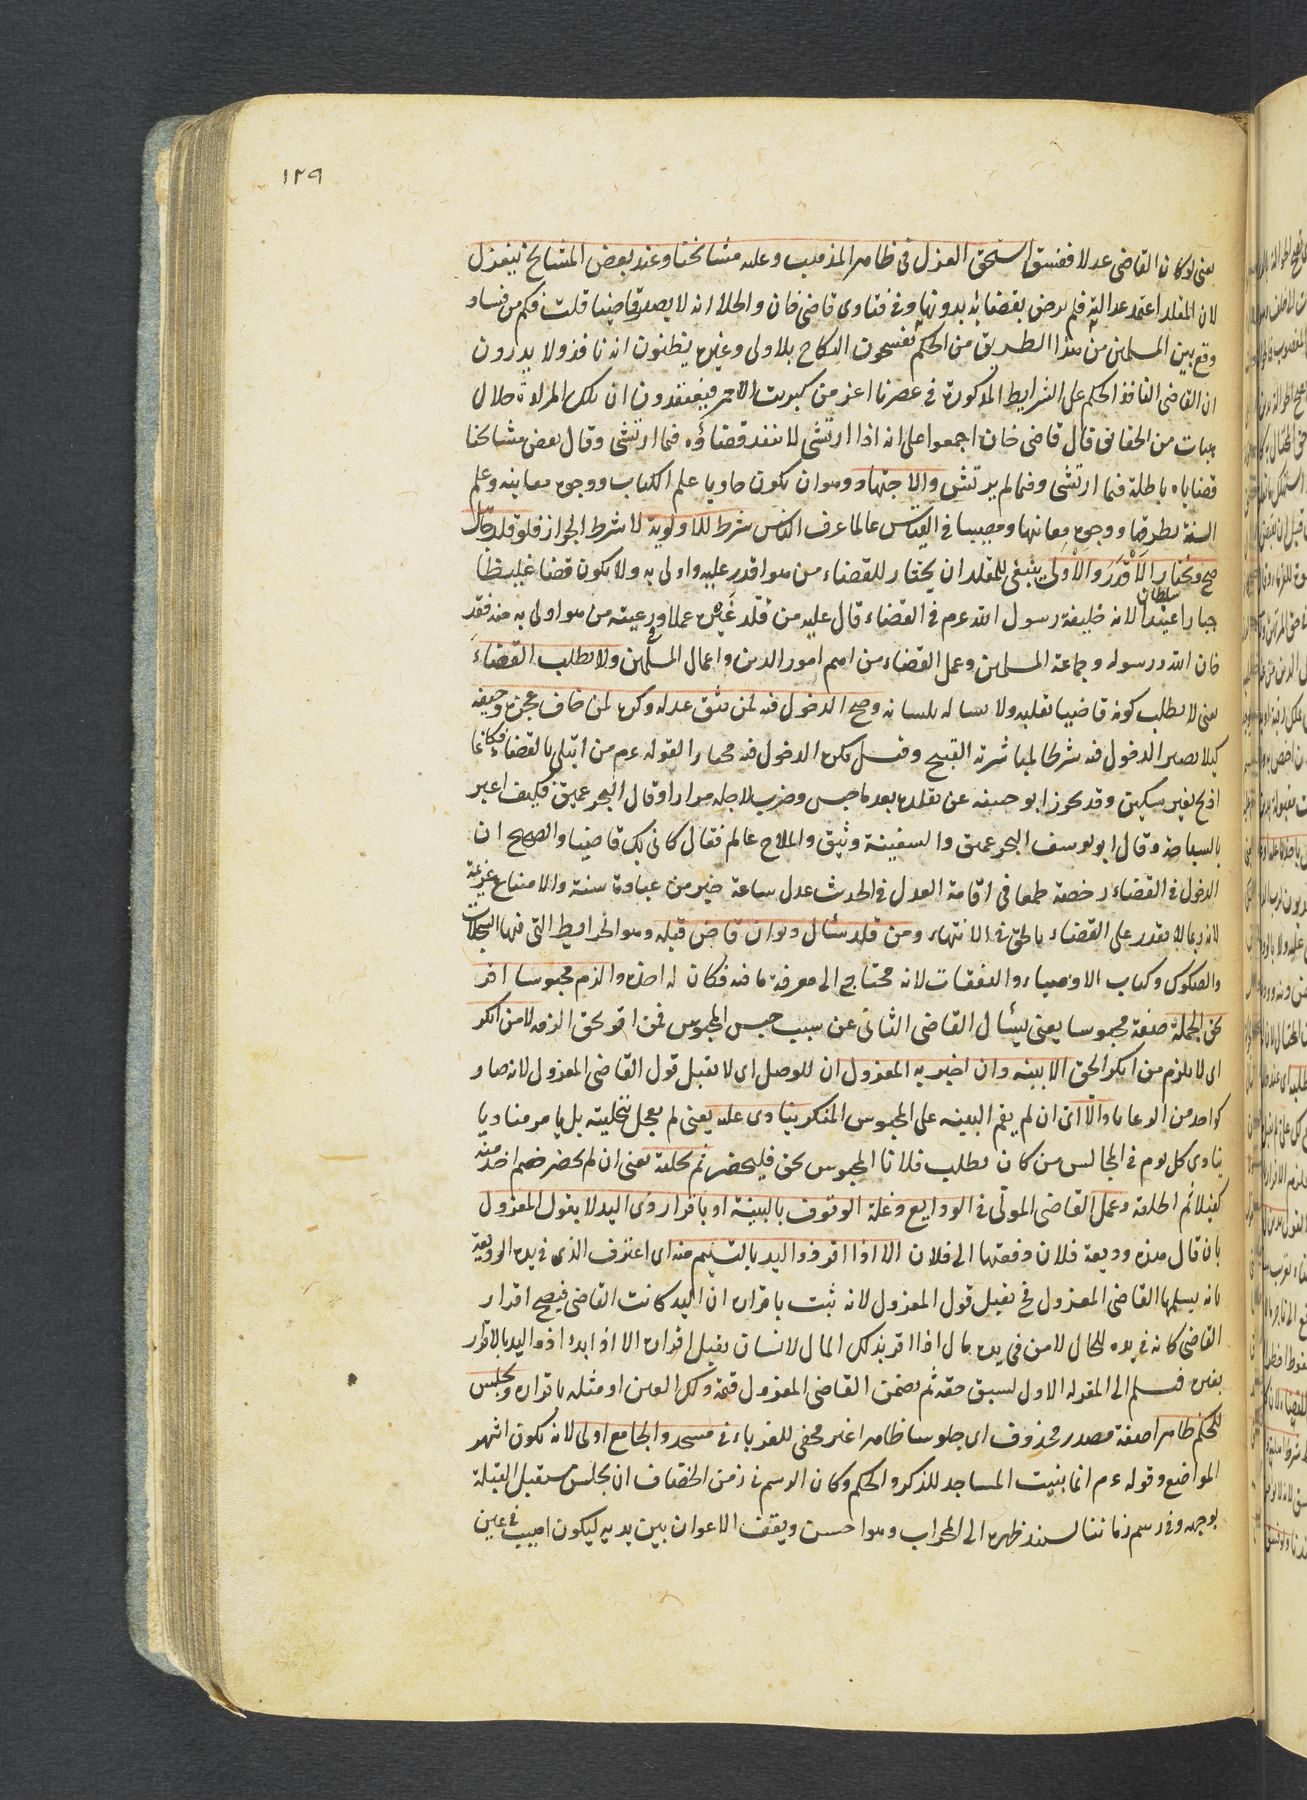 ١٢٩
يعني لو كان القاضي عدلا ففسق استحق العزل في ظاهر المذهب وعليه مشايخنا وعند بعض المشايخ ينعزل
لان المقلد اعتمد عدالته فلم يرض بقضائه بدونها وفي فتاوى قاضي خان والحلا انه لا يصير قاضيا قلت فكم من فساد
وقع بين المسلمين من هذا الطريق من الحكم بفسخون النكاح بلا ولى وغيره يظنون انه نافذ ولا يدرون
ان القاضي النافذ الحكم على الشرايط المذكورة في عصرنا اعز من كبريت الاحمر فيعتقدون ان تلك المراة حلال
هيهات من الحقائق قال قاضي خان اجمعوا على انه اذا ارتشى لا ينفد قضاؤه فيما ارتشى وقال بعض مشايخنا
قضاياه باطلة فيما ارتشى وفيما لم يرتشي والاجتهاد وهو ان يكون حاويا علم الكتاب ووجوه معانيه وعلم
السنة بطرقها ووجوه معانيها ومصيبا في القياس عالما عرف الناس شرط للاولوية لا شرط الجواز فلو قلد جاهل
صح ويختار الاقدر والاولى ينبغي للمقلد ان يختار للقضاء من هو اقدر عليه واولى به ولا يكون قضا غليظا
جبارا عنيدا لانه خليفة رسول الله عم في القضاء قال عليه من قلد غيره عملا وفي رعيته من هو اولى به منه فقد
خان الله ورسوله وجماعة المسلمين وعمل القضاء من اهم امور الدين واعمال المسلمين ولا يطلب القضاء
يعني لا يطلب كونه قاضيا بقلبه ولا يساله بلسانه وصح الدخول فيه لمن يثق عدله وكره لمن خاف عجزه وحيفه
كيلا يصير الدخول فيه شرطا لمباشرته القبيح وقيل يكره الدخول فيه مختارا لقوله عم من ابتلى بالقضاء فكانما
اذبح بغير سكين وقد تحرز ابو حنيفة عن تقلده بعد ما حبس وضرب لاجله مرارا وقال البحر عميق فكيف اعبر
بالسباحة وقال ابو يوسف البحر عميق والسفينة وثيق والملاح عالم فقال كاني بك قاضيا والصحيح ان
الدخول في القضاء رخصة طمعا في اقامة العدل في الحدث عدل ساعة خير من عبادة سنة والامتناع عزيمة
لانه ربما لا يقدر على القضاء بالحق في الانتهاء ومن قلد سئال ديوان قاض قبله وهو الخرايط التي فيها السجلات
والصكوك وكتاب الاوصياء والنفقات لانه محتاج الى معرفة ما فيه فكان له اخذه والزم محبوسا اقر
بحق الجملة صفة محبوسا يعني يسئال القاضي الثاني عن سبب حبس المحبوس فمن اقر بحق الزمه لا من انكر
اى لا يلزم من انكر الحق الا ببينه وان اخبر به المعزول ان للوصل اى لا يقبل قول القاضي المعزول لانه صار
كواحد من الرعايا والا اى ان لم يقم البينه على المحبوس المنكر ينادى عليه يعني لم يعجل بتخليته بل يامر مناديا
ينادى كل يوم في المجالس من كان يطلب فلانا المحبوس بحق فليحضر ثم يخليه يعني ان لم يحضر خصم اخذ منه
كفيلا ثم اطلقه وعمل القاضي المولى في الودايع وغلة الوقوف بالبينة او باقرار ذى اليد لا بقول المعزول
بان قال هذه وديعة فلان دفعتها الى فلان الا اذا اقر ذو اليد بالتسليم منه اى اعترف الذى في يده الوديعة
بانه يسلمها القاضي المعزول فح يقبل قول المعزول لانه ثبت باقراره ان اليد كانت القاضي فيصح اقرار
القاضي كانه في يده للحال لا من في يده مال اذا اقر بذلك المال لانسان يقبل اقراره الا اذا ابدا ذو اليد بالاقرار
بغيره فيسلم الى المقر له الاول لسبق حقه ثم يضمن القاضي المعزول قيمة ذلك العين او مثله باقراره ويجلس
للحكم ظاهرا صفة مصدر محذوف اى جلوسا ظاهرا غير مخفى للغرباء في مسجد والجامع اولى لانه يكون اشهر
المواضع وقوله عم انما بنيت المساجد للذكر والحكم وكان الرسم في زمن الخصاف ان يجلس مستقبل القبلة
بوجهه وفي رسم زماننا يسند ظهره الى المحراب وهو احسن ويقف الاعوان بين يديه ليكون اهيب في عين